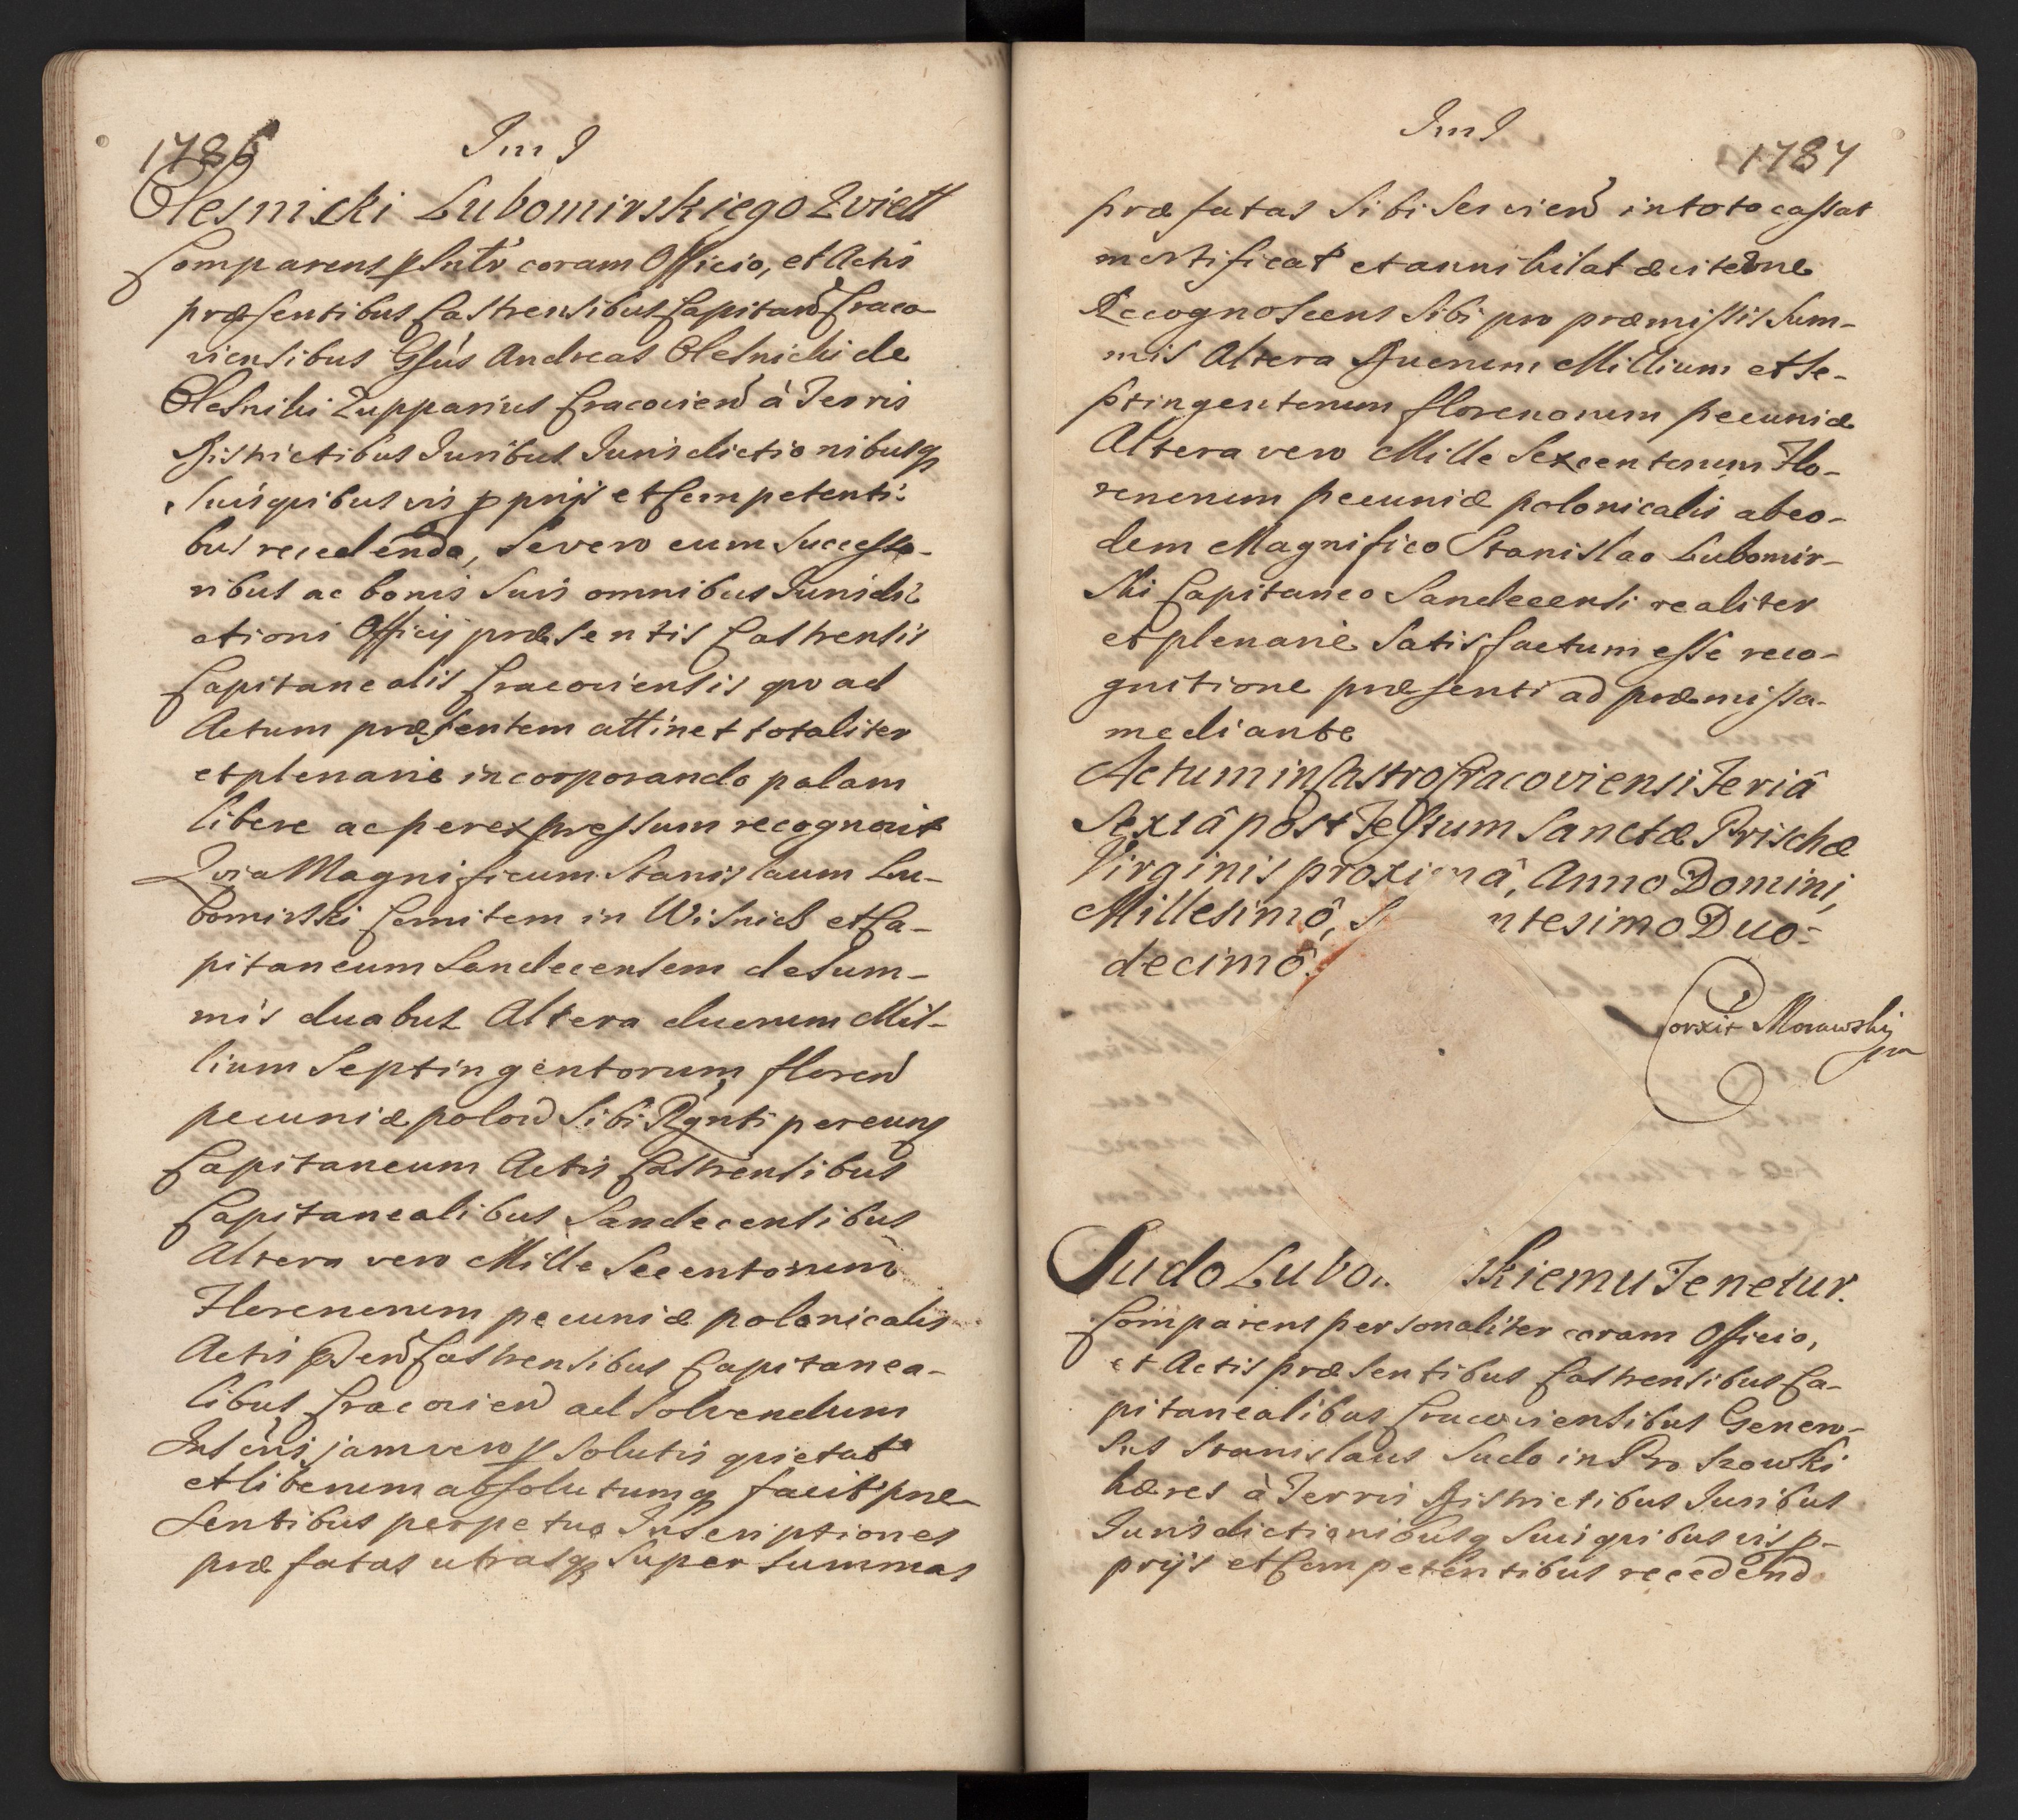 1786
Im J
Olesnicki Lubomirskiego Zviett
Comparens psnltr coram Officio, et Actis
præsentibus Castrensibus Capitan Craco-
viensibus Gssus Andreas Olesnicki de
Olesniki Zupparius Cracovien à Terris
Districtibus Juribus Jurisdictionibusq
suis quibusvis pprijs et Competenti-
bus recedendo, se vero cum Successo-
ribus ac bonis suis omnibus Jurisdi-
ctioni Officij præsentis Castrensis
Capitanealis Cracoviensis quoad
Actum præsentem attinet totaliter
et plenarie incorporando palam
libere ac per expressum recognovit
Quia Magnificum Stanislaum Lu-
bomirski Comitem in Wisnicz et Ca-
pitaneum Sandecensem de Sum-
mis duabus Altera duorum Mil-
lium Septingentorum floren
pecuniæ polon Sibi Rgnti per eunq
Capitaneum Actis Castrensibus
Capitanealibus Sandecensibus
Altera vero Mille Secentorum
Florenorum pecuniæ polonicalis
Actis Castrensibus Capitanea-
libus Cracovien ad Solvendum
jam vero p solutis quietat
et liberum absolutumq facit præ-
sentibus perpetuo Inscriptiones
præfatas utrasq super summas
Im J
1787
præfatas Sibi Servien in toto cassat
mortificat et annihilat æviterne
Recognoscens Sibi pro præmissis Sum-
mis Altera Duorum Millium et Se-
ptingentorum florenorum pecuniæ
Altera vero Mille Sexcentorum Flo-
renorum pecuniæ polonicalis ab eo-
dem Magnifico Stanislao Lubomir-
ski Capitaneo Sandecensi realiter
et plenarie Satisfactum esse reco-
gnitione præsenti ad præmissa
mediante
Actum in Castro Cracoviensi Feriâ
Sextâ post Festum Sanctæ Prischæ
Virginis proximâ, Anno Domini,
Millesimô, S ntesimo Duo-
decimô.
Corxit Morawskj
Sudo Lubo skiemu Tenetur.
Comparens personaliter coram Officio,
et Actis præsentibus Castrensibus Ca-
pitanealibus Cracoviensibus Genero-
sus Stanislaus Sudo in
hæres à Terris Districtibus Juribus
Jurisdictionibusq suis quibusvis p-
prijs et Competentibus recedend